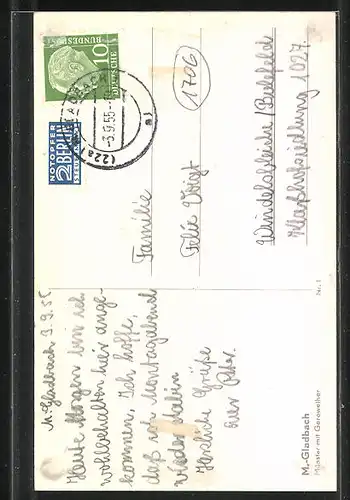 M. Gladbach 3.9.55
Heute Morgen bin ich
wohlbehalten hier ange-
kommen. Ich hoffe,
daß ich Montagabend
wieder daheim
Herzliche Grüße
euer Peter.
M.-Gladbach
Münster mit Geroweiher
Nr. 1
DEUTSCHE
BUNDESPOST
10
NOTOPFER
2 BERLIN
STEUERMARKE
GLADBACH
-3.9.55
(22a)
a
1706
Familie
Felix Voigt
Windelsbleiche/Bielefeld
1027